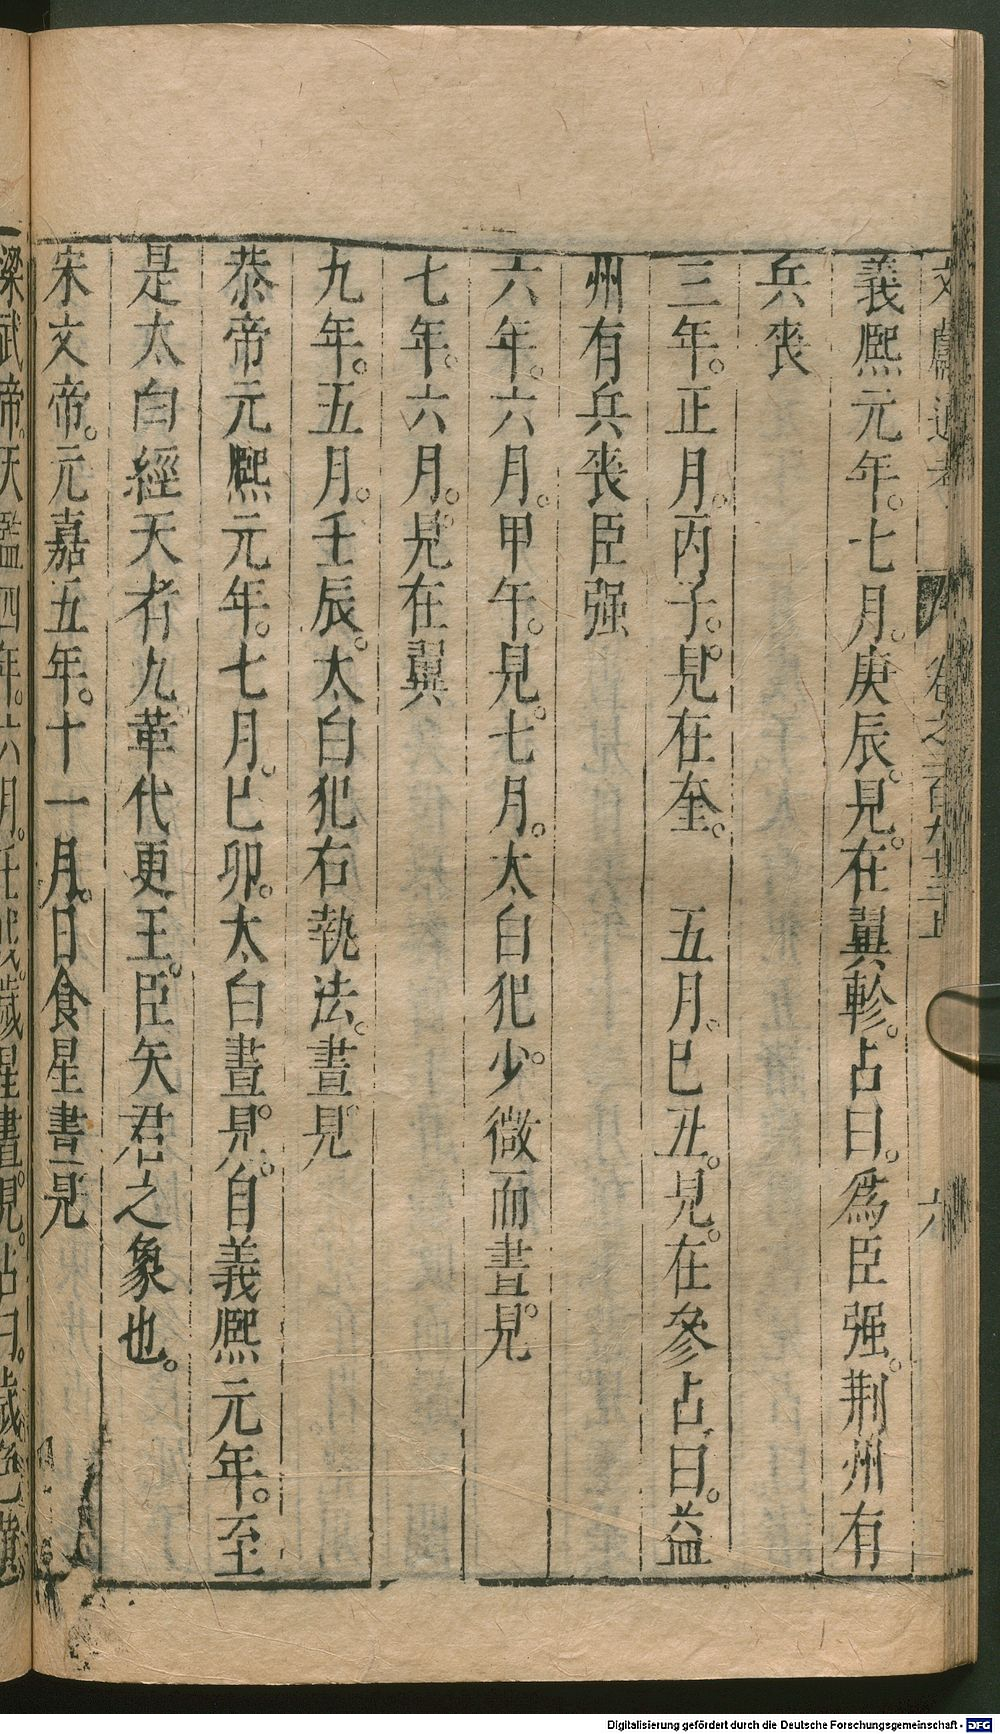 文獻通考 卷之二百九十三上 六
義熙元年。七月。庚辰。見。在翼軫。占曰。爲臣强。荆州有
兵喪
三年。正月。丙子。見在奎。 五月。巳丑。見。在參占曰。益
州有兵喪臣强
六年。六月。甲午。見。七月。太白犯少。微而晝。見
七年。六月。見在翼
九年。五月。壬辰。太白犯右執法。晝見
恭帝元熙元年。七月。巳卯。太白晝。見。自義熙元年。至
是太白經天者九革代更王。臣失君之象也。
宋文帝。元嘉五年。十一月。日食星晝見
梁武帝。天監四年。六月。壬戌。歲星晝。見。占曰。歲色黃
Digitalisierung gefördert durch die Deutsche Forschungsgemeinschaft - DFG